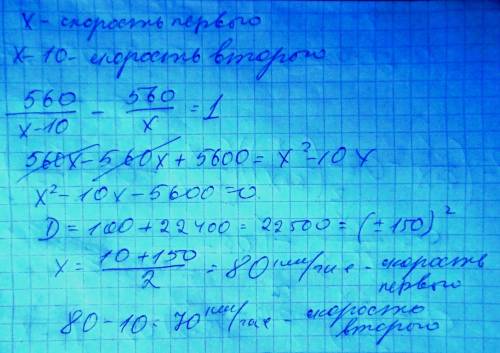 x - скорость первого
x-10 - скорость второго
560/(x-10) - 560/x = 1
560x - 560x + 5600 = x² - 10x
x² - 10x - 5600 = 0
D = 100 + 22400 = 22500 = (±150)²
x = (10+150)/2 = 80 км/час - скорость первого
80 - 10 = 70 км/час - скорость второго